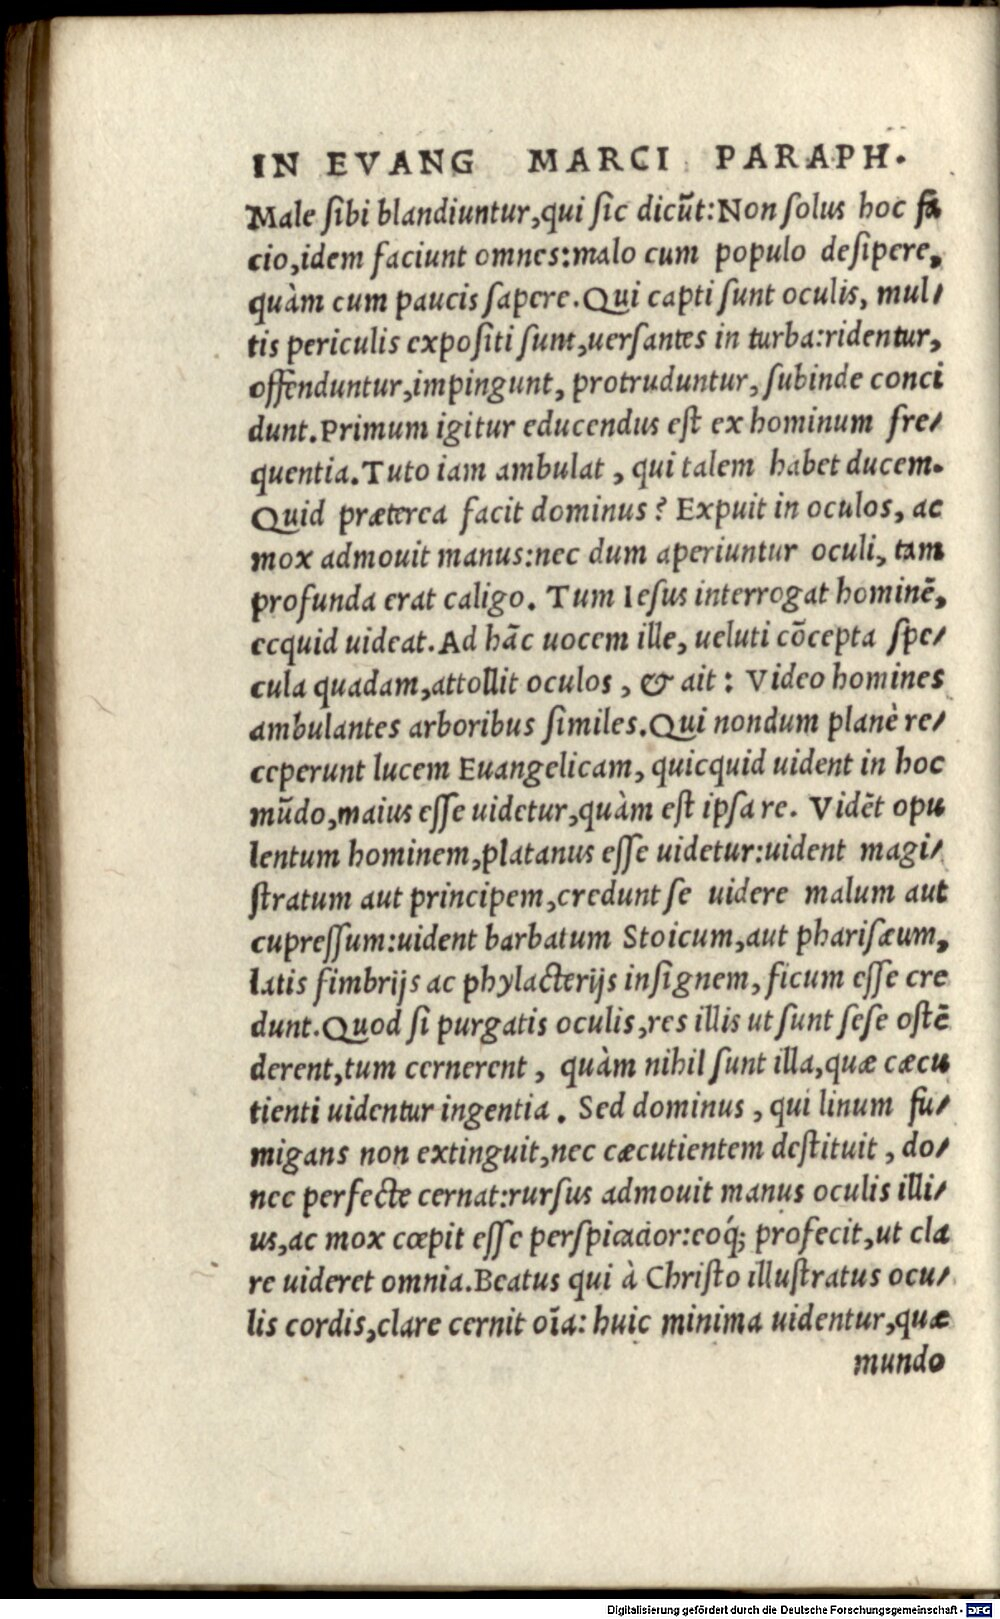 IN EVANG MARCI PARAPH.
Male ſibi blandiuntur,qui ſic dicũt:Non ſolus hoc fa
cio,idem faciunt omnes:malo cum populo deſipere,
quàm cum paucis ſapere.Qui capti ſunt oculis, mul/
tis periculis expoſiti ſunt,uerſantes in turba:ridentur,
offenduntur,impingunt, protruduntur, ſubinde conci
dunt.Primum igitur educendus eſt ex hominum fre/
quentia.Tuto iam ambulat , qui talem habet ducem.
Quid præterea facit dominus? Expuit in oculos, ac
mox admouit manus:nec dum aperiuntur oculi, tam
profunda erat caligo. Tum Ieſus interrogat hominẽ,
ecquid uideat.Ad hãc uocem ille, ueluti cõcepta ſpe/
cula quadam,attollit oculos , & ait: Video homines
ambulantes arboribus ſimiles.Qui nondum planè re/
ceperunt lucem Euangelicam, quicquid uident in hoc
mũdo,maius eſſe uidetur,quàm eſt ipſa re. Vidẽt opu
lentum hominem,platanus eſſe uidetur:uident magi/
ſtratum aut principem,credunt ſe uidere malum aut
cupreſſum:uident barbatum Stoicum,aut phariſæum,
latis fimbrijs ac phylacterijs inſignem, ficum eſſe cre
dunt.Quod ſi purgatis oculis,res illis ut ſunt ſeſe oſtẽ
derent,tum cernerent , quàm nihil ſunt illa,quæ cæcu
tienti uidentur ingentia. Sed dominus , qui linum fu/
migans non extinguit,nec cæcutientem deſtituit , do/
nec perfecte cernat:rurſus admouit manus oculis illi/
us,ac mox cœpit eſſe perſpicacior:eóq; profecit,ut cla
re uideret omnia.Beatus qui à Chriſto illuſtratus ocu/
lis cordis,clare cernit oĩa: huic minima uidentur,quæ
mundo
Digitalisierung gefördert durch die Deutsche Forschungsgemeinschaft - DFG